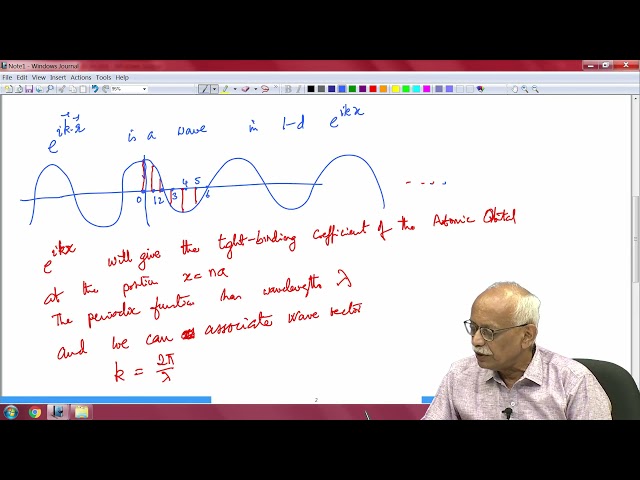 Note1 - Windows Journal
File Edit View Insert Actions Tools Help
e^{i\vec{k}·\vec{r}} is a wave in 1-d e^{ikx}
0 1 2 3 4 5 6 ....
e^{ikx} will give the tight-binding coefficient of the Atomic Orbital
at the position x = na
The periodic function has wavelength λ
and we can associate wave vector
k = 2π/λ
2